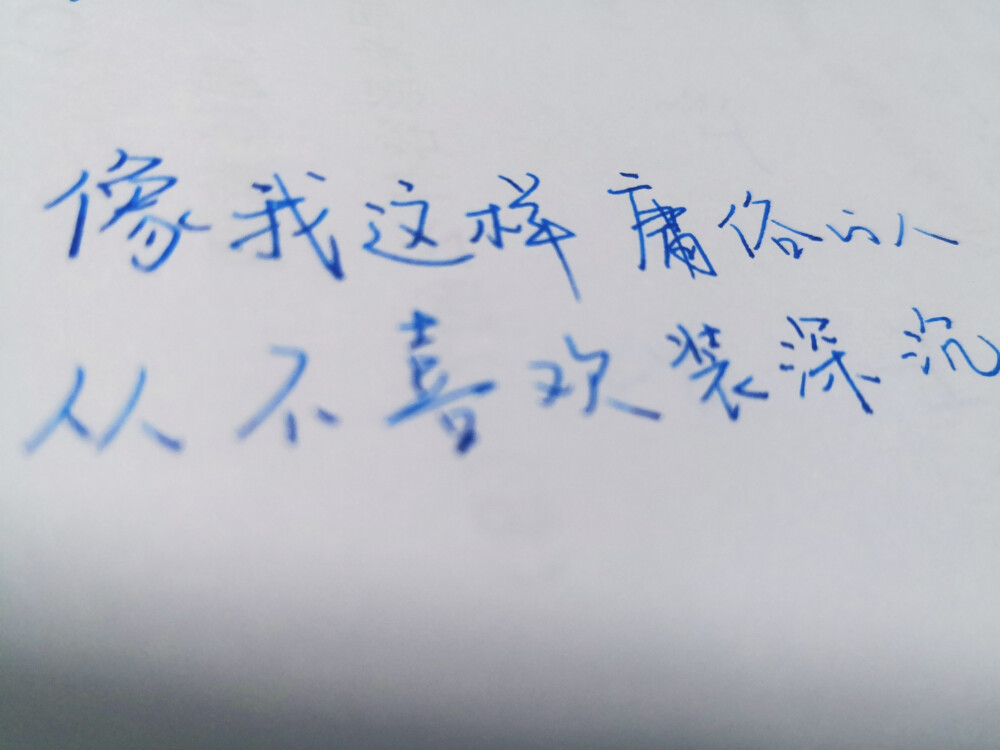 像我这样庸俗的人
从不喜欢装深沉